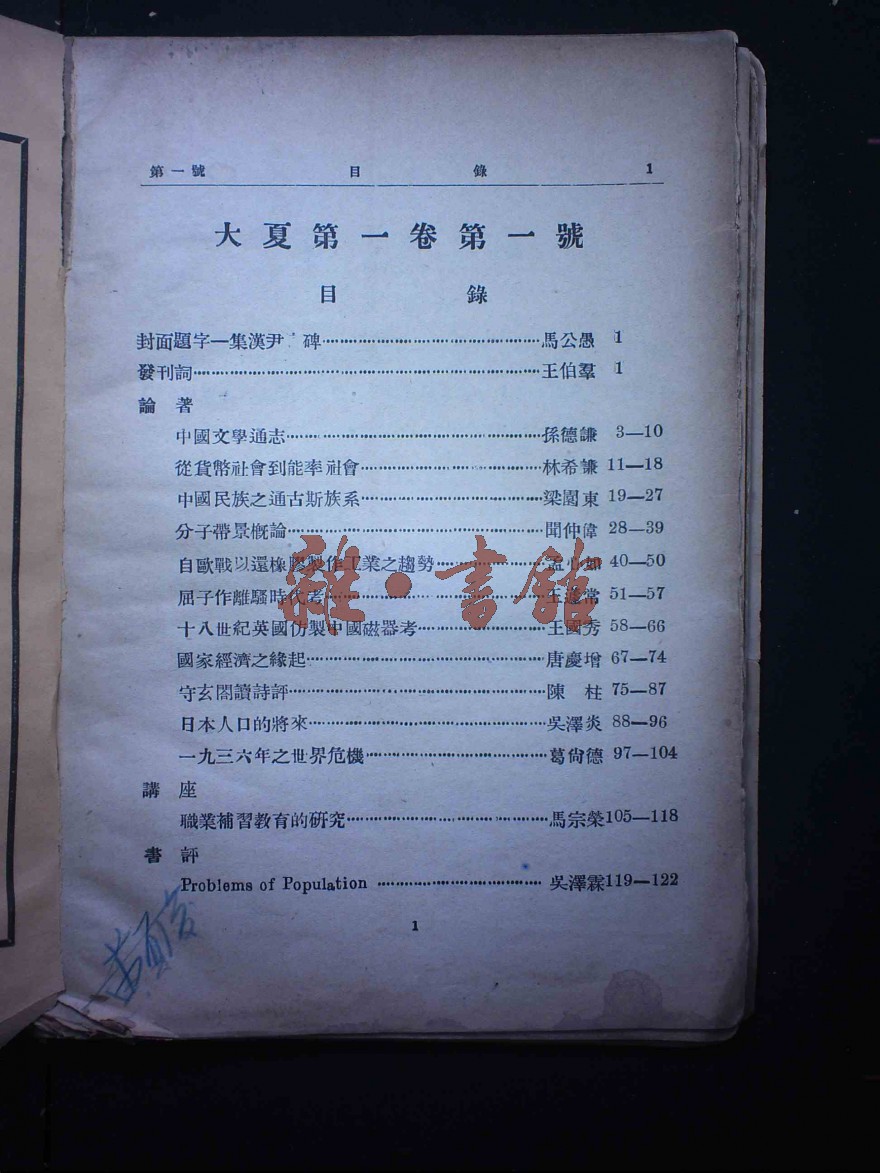 第一號 目錄 1
大夏第一卷第一號
目錄
封面題字—集漢尹 碑 馬公愚 1
發刊詞 王伯羣 1
論著
中國文學通志 孫德謙 3—10
從貨幣社會到能率社會 林希謙 11—18
中國民族之通古斯族系 梁園東 19—27
分子帶景概論 聞仲偉 28—39
自歐戰以還橡膠製作工業之趨勢 孟心如 40—50
屈子作離騷時代考 王蘧常 51—57
十八世紀英國仿製中國磁器考 王國秀 58—66
國家經濟之緣起 唐慶增 67—74
守玄閣讀詩評 陳柱 75—87
日本人口的將來 吳澤炎 88—96
一九三六年之世界危機 葛尙德 97—104
講座
職業補習教育的研究 馬宗榮 105—118
書評
Problems of Population 吳澤霖 119—122
1
雜·書館